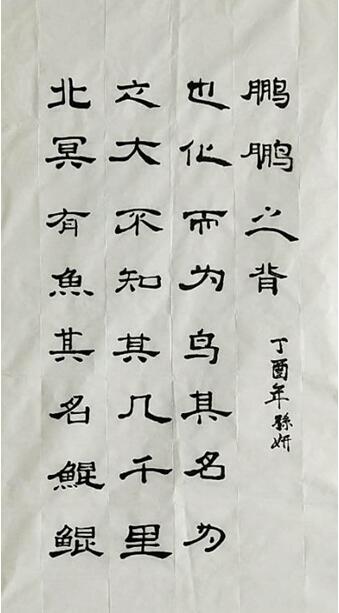 北冥有魚其名鯤鯤
之大不知其几千里
也化而为鸟其名为
鹏鹏之背
丁酉年孫妍